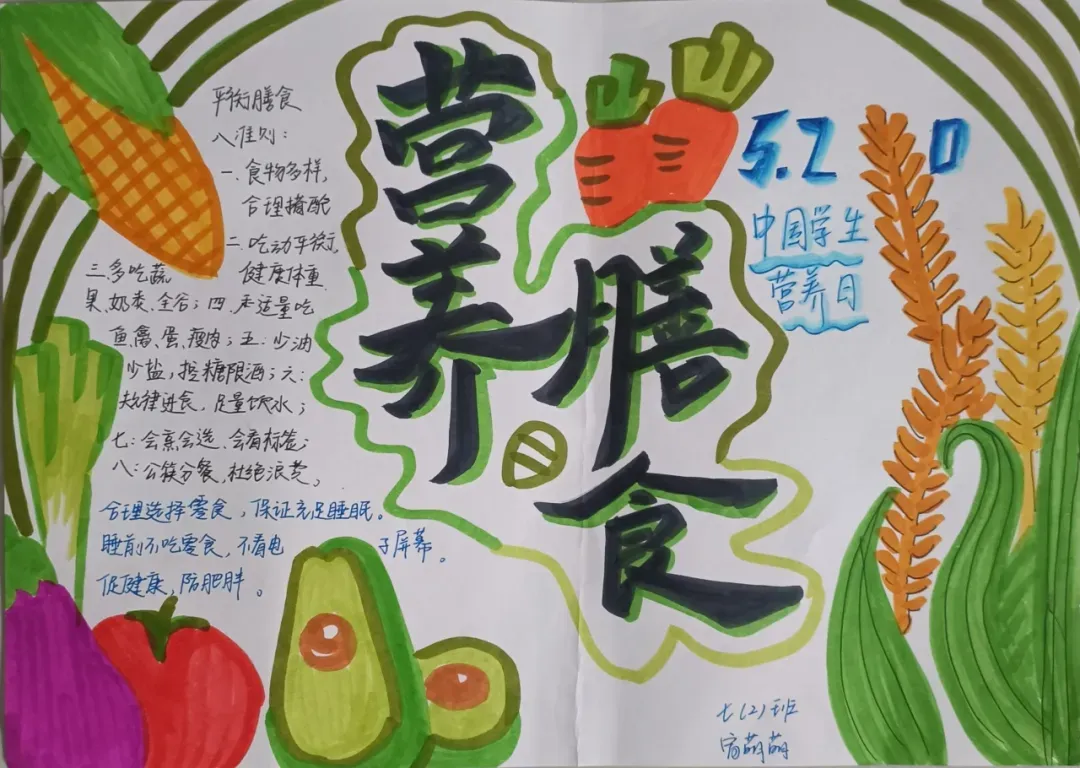 平衡膳食
八准则：
一.食物多样,
合理搭配
二.吃动平衡,
健康体重
三.多吃蔬
果、奶类、全谷；四.适量吃
鱼、禽、蛋、瘦肉；五：少油
少盐，控糖限酒；六：
规律进食，足量饮水；
七：会烹会选、会看标签；
八：公筷分餐,杜绝浪费,
合理选择零食，保证充足睡眠。
睡前不吃零食，不看电子屏幕。
促健康，防肥胖。
营养
膳食
5.20
中国学生
营养日
七(2)班
萌萌